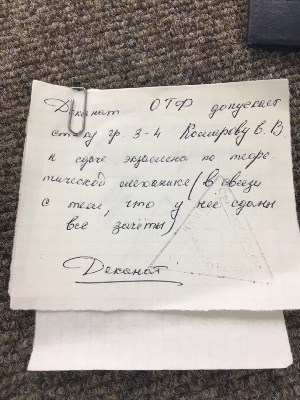 Деканат ОТФ допускает
ст-ку гр. 3-4 Комарову С. В
к сдаче экзамена по теоре
тической механике (в связи
с тем, что у нее сданы
все зачёты)
Деканат